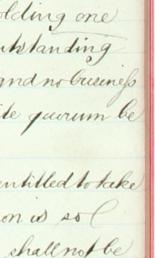 olding one
utstanding
and no business
ite quorum be
entitled to take
on is so
shall not be